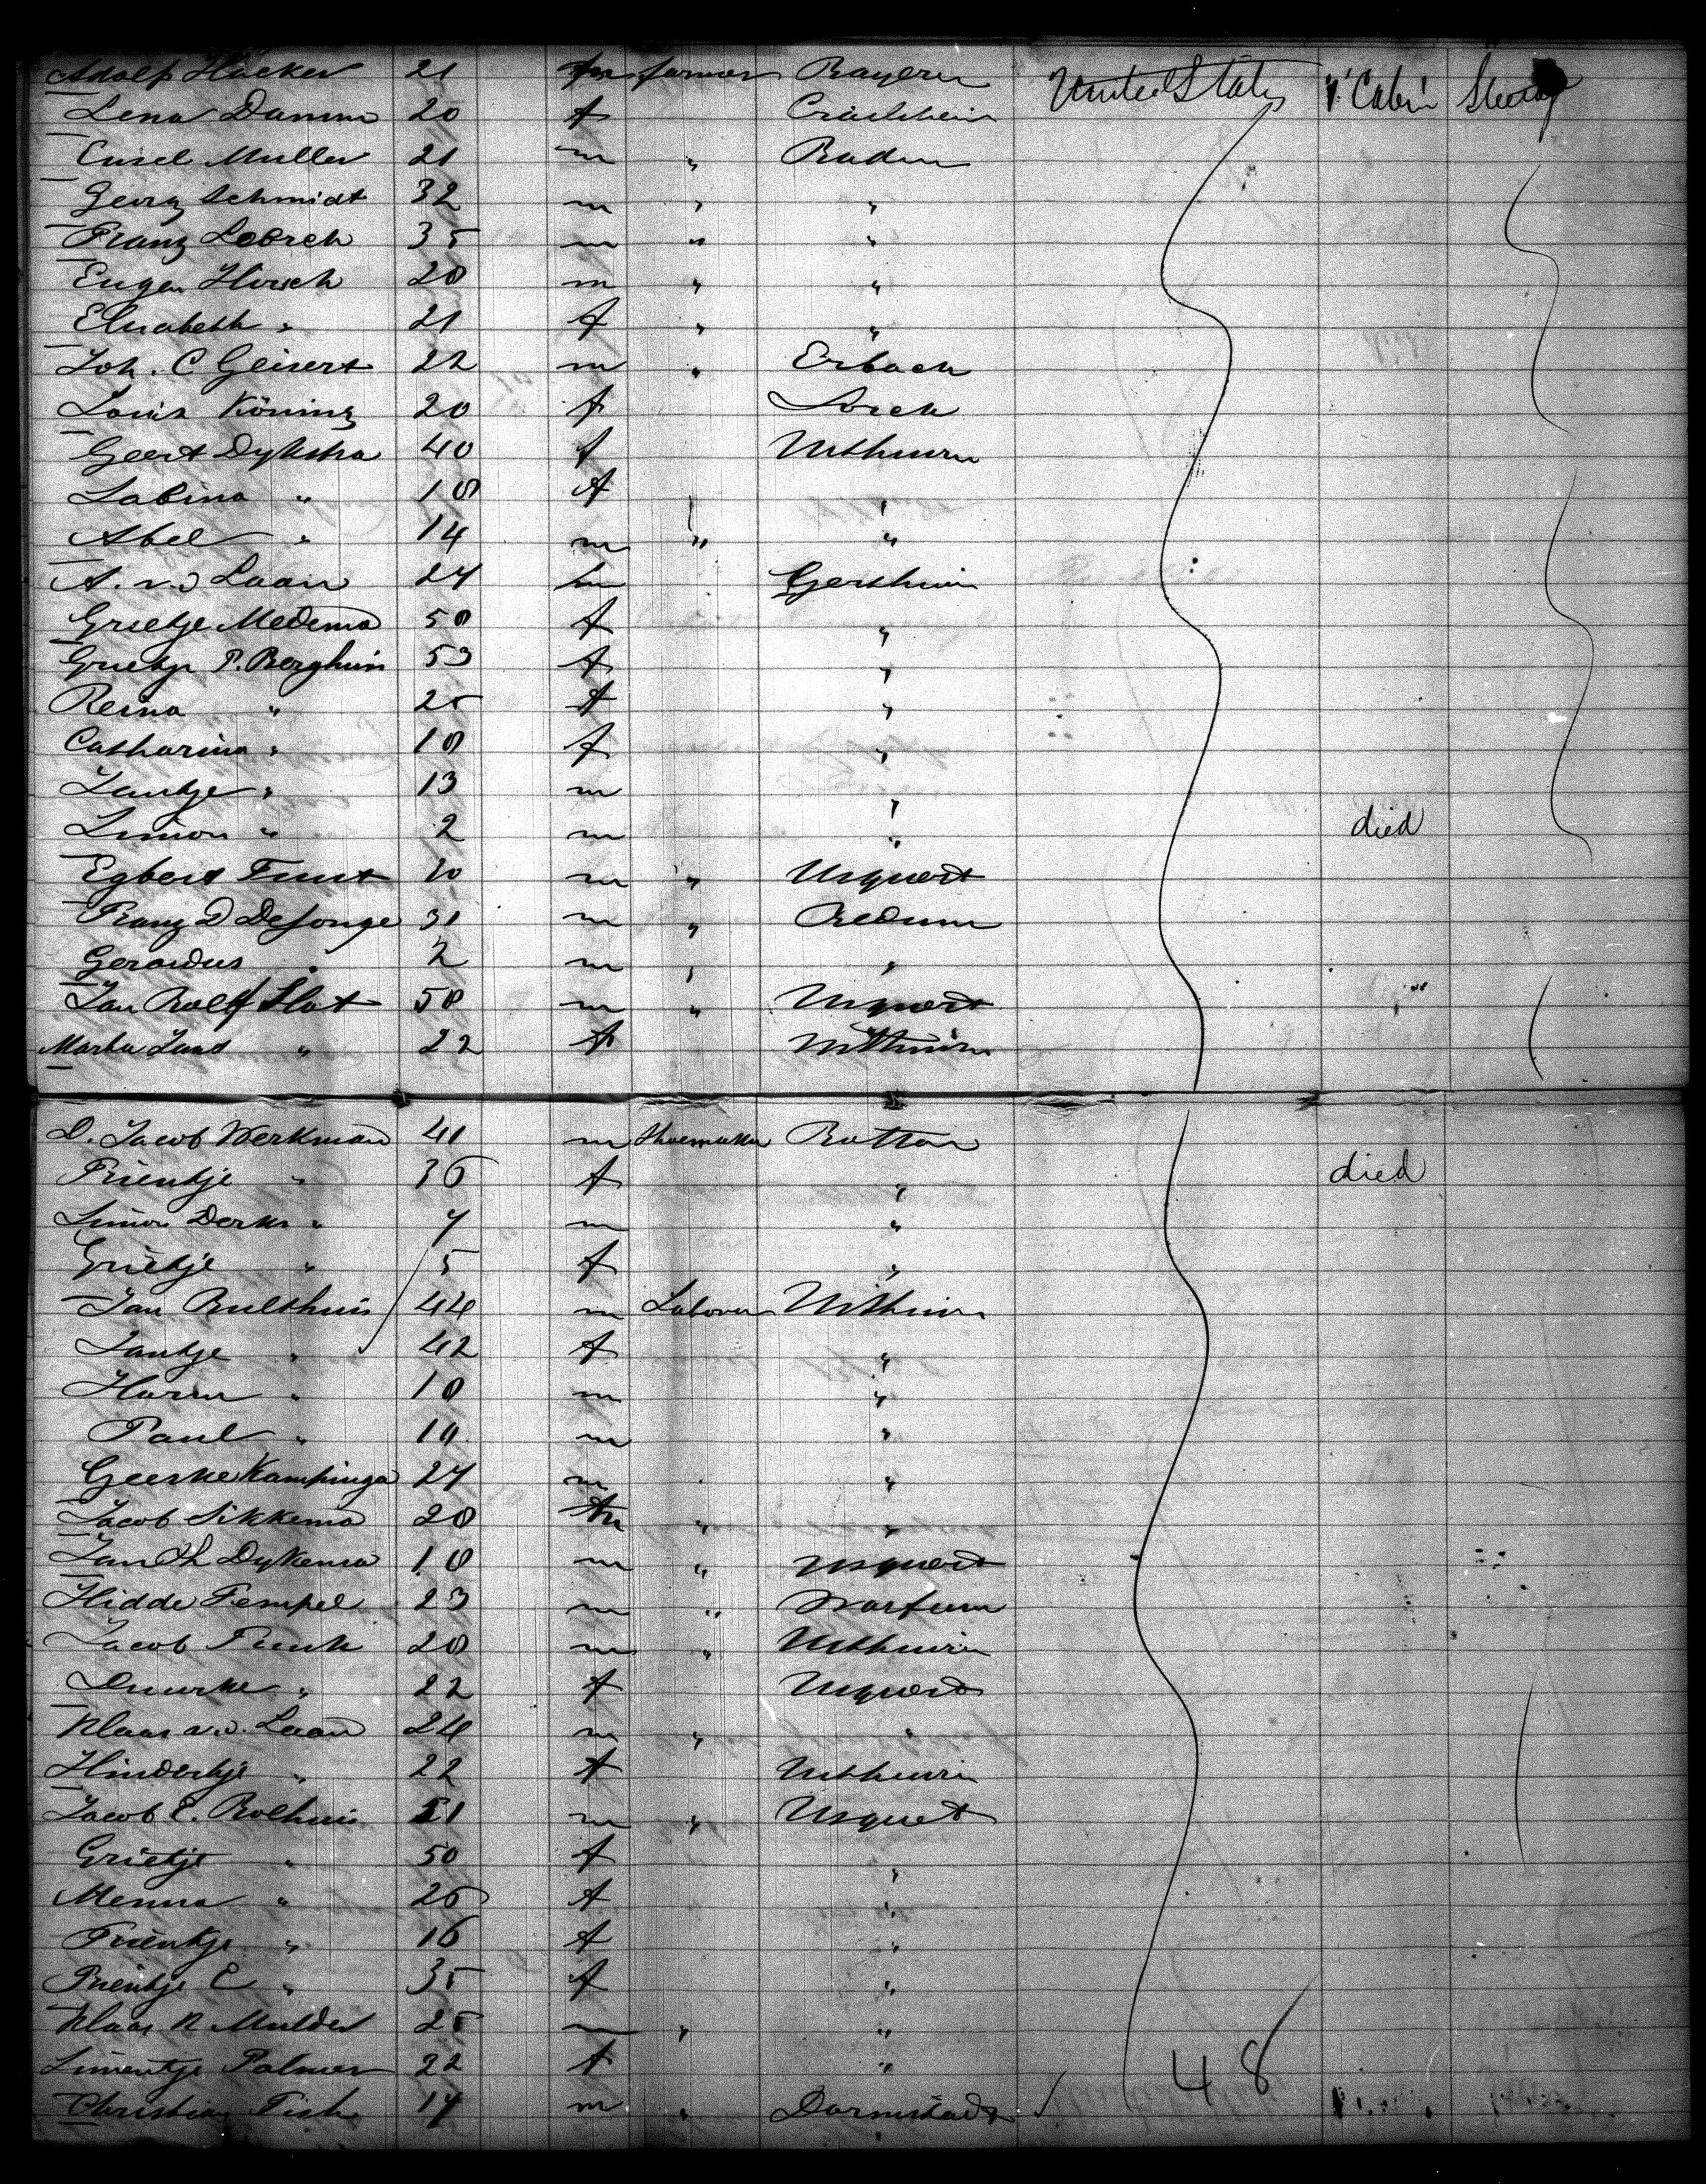 Adolf Hacker 21 m farmer Bayern United States Cabin
Lena Damm 20 f
Muller 21 m " Baden
Georg Schmidt 32 m " "
Franz Lorsch 35 m " "
Eugen Hirsch 20 m " "
Elisabeth " 21 f " "
Joh. C Geisert 22 m " Erbach
König 20 f Lorch
Geert Dykstra 40 f Uithuizen
Sabina " 18 f "
Abel " 14 m " "
A. v.d Laan 24 m
Grietje Medema 50 f "
Grietje P. Berghuis 53 f "
Reina " 25 f "
Catharina " 18 f "
Jantje " 13 m "
Simon " 2 m " died
Egbert m " Usquert
Franz D DeJonge 31 m " Bedum
Gerardus " 2 m " "
Jan Rolf Slot 58 m " Usquert
" 22 f
D. Jacob Werkman 41 m Shoemaker
Trientje " 36 f " died
Simon Derks " 7 m "
Grietje " 5 f "
Jan Bulthuis 44 m Laborer Uithuizen
Jantje " 42 f "
Harm " 18 m "
Paul " m "
Geeske Kampinga 24 m "
Jacob Sikkema 20 m " "
Dykema 18 m " Usquert
Hidde Tempel 23 m " Warfum
Jacob 20 m " Uithuizen
" 22 f Usquert
Klaas v.d. Laan 24 m " "
Hindertje " 22 f Uithuizen
Jacob E. Bolhuis 51 m " Usquert
Grietje " 50 f "
Menna " 26 f "
Trientje " 16 f "
Trientje E " 35 f "
Klaas R Mulder 25 m " "
Palmer 22 f "
Christian Fish 14 m " Darmstadt
48